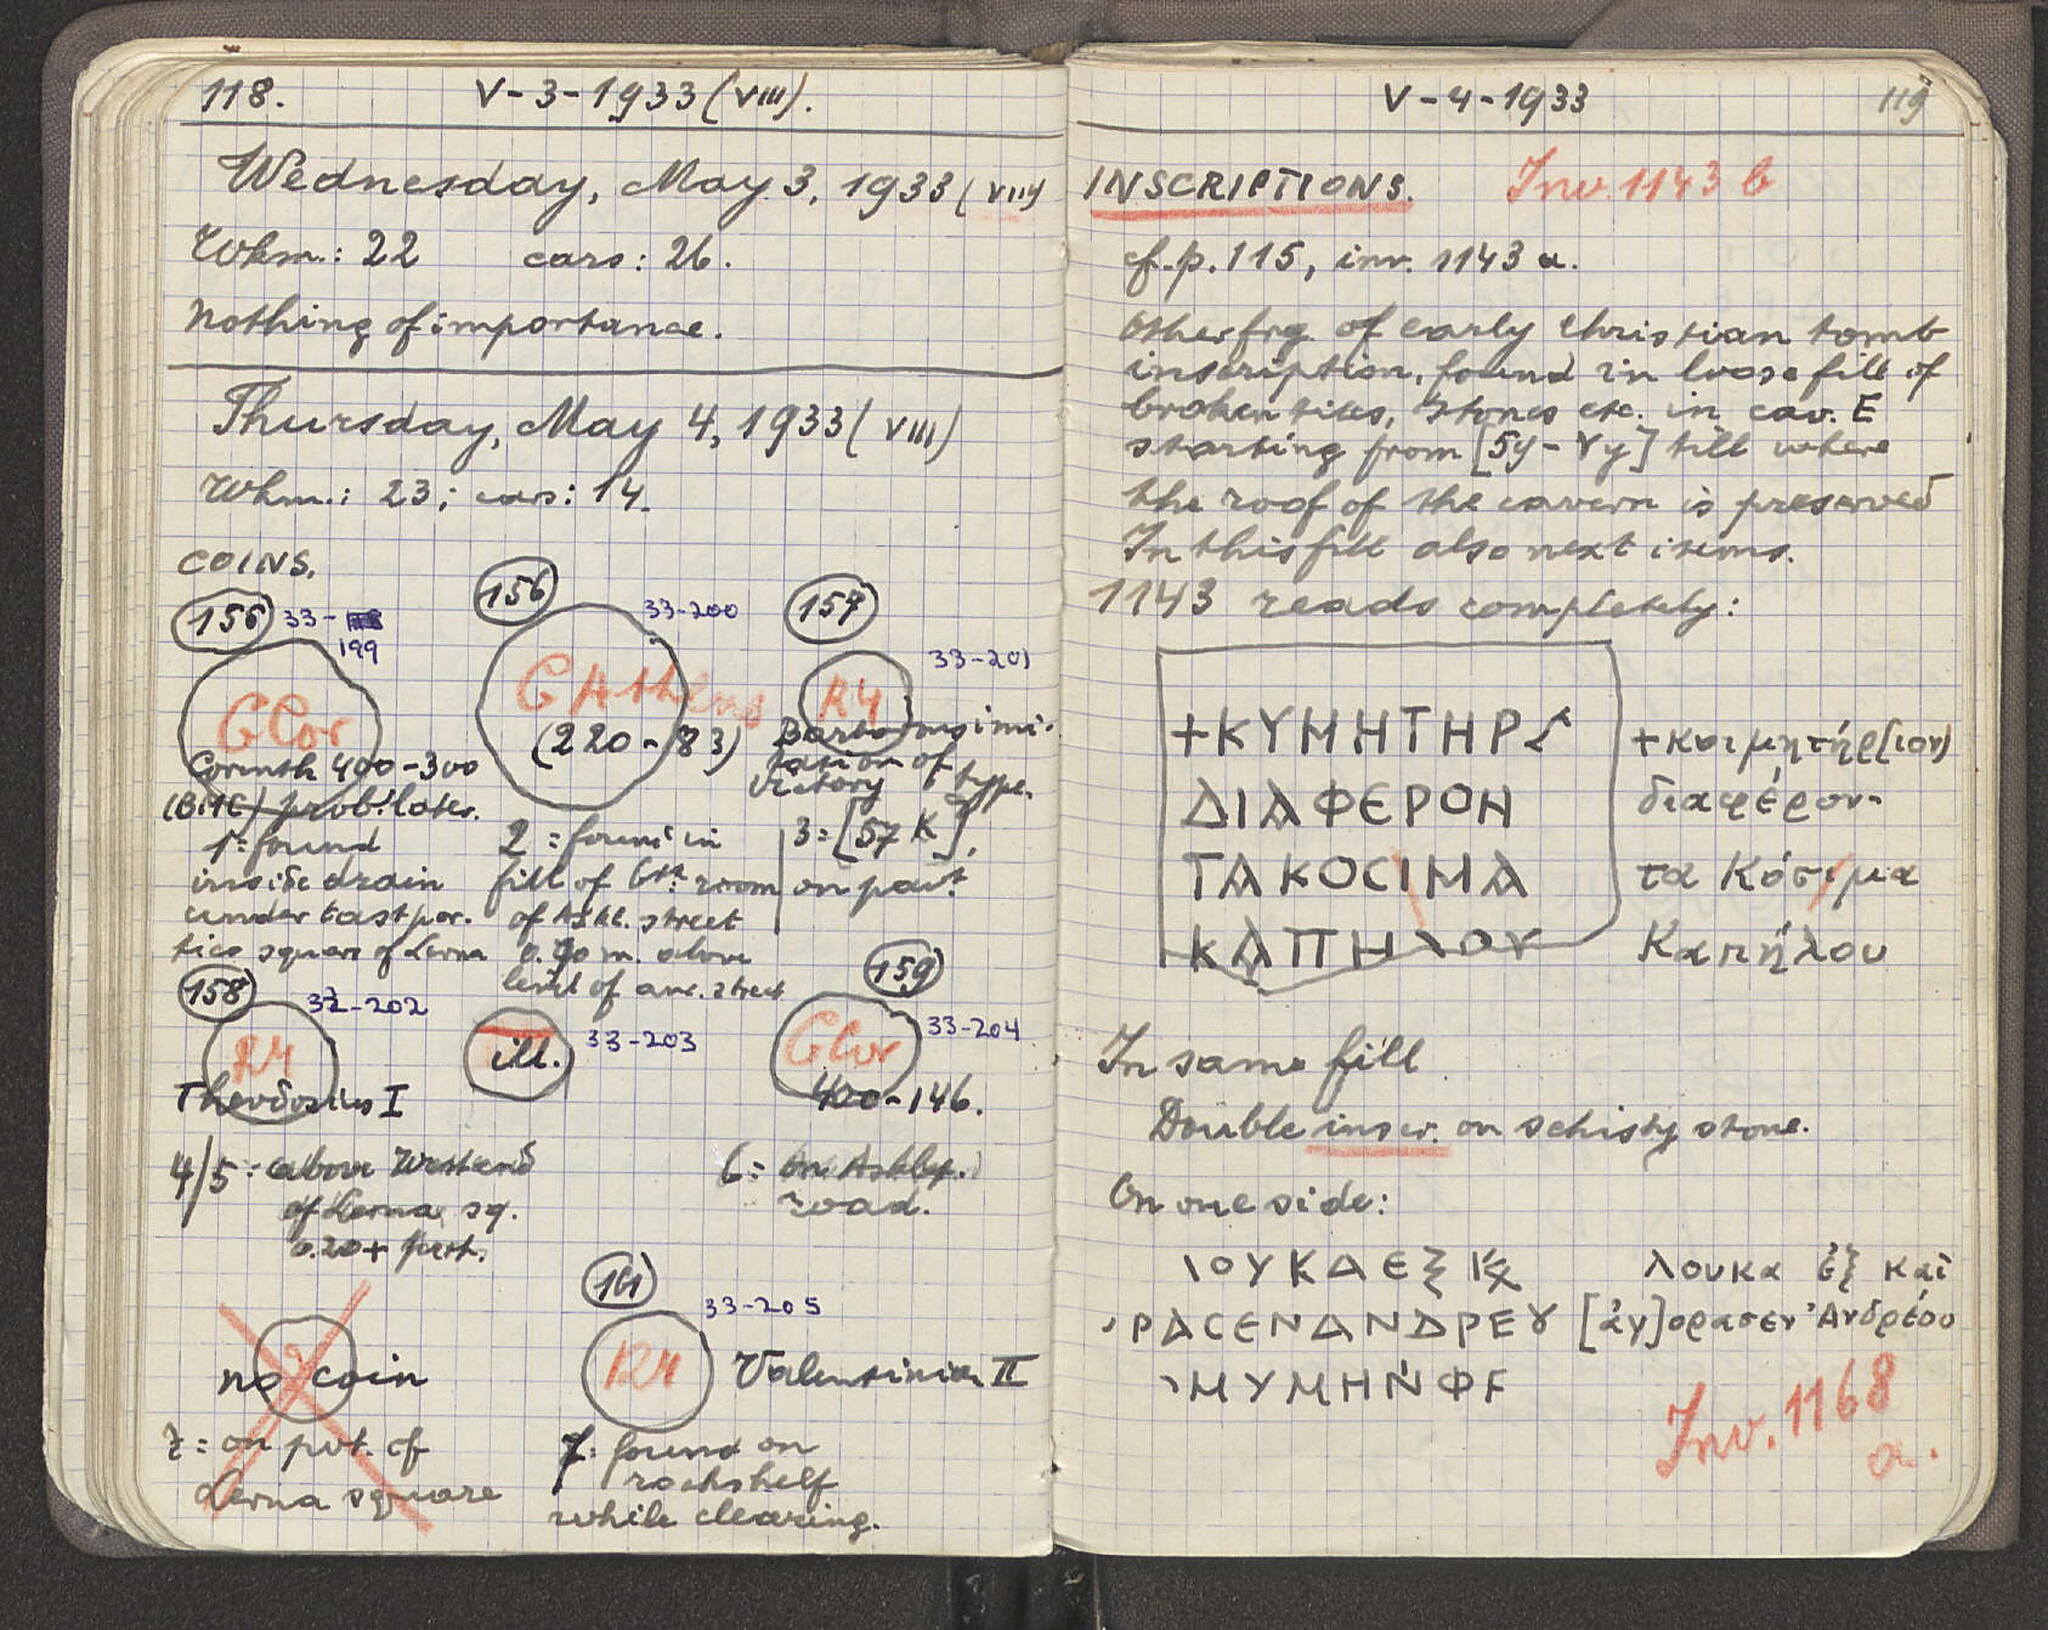 118. V-3-1933 (VIII).
Wednesday, May 3, 1933 (VIII)
Wkm.: 22 cars: 26.
Nothing of importance.
Thursday, May 4, 1933 (VIII)
Wkm.: 23; cars: 14.
COINS.
155 33-199
G Cor
Corinth 400-300
(BMC) prob. later.
1 = found
inside drain
under East por-
tico square of Lerna
156 33-200
G Athens
(220-83)
2 = found in
fill of 6th room
of Askl. street
above
level of anc. street
157 33-201
R4
Barbarous imi-
tation of type
victory
3 = [57 K],
on pavt
158 32-202
R4
Theodosius I
ill. 33-203
159
G Cor 33-204
400-146.
4/5: above West end
of Lerna sq.
0.20 +
6: on Asklep.
road.
no coin
7 = on pvt. of
Lerna square
161 33-205
R4 Valentinian II
7: found on
rockshelf
while clearing.
V-4-1933 119
INSCRIPTIONS. Inv. 1143 b
cf. p. 115, inv. 1143 a.
Other frg. of early Christian tomb
inscription, found in loose fill of
broken tiles, stones etc. in cav. E
starting from [5y - Vy] till where
the roof of the cavern is preserved
In this fill also next items.
1143 reads completely:
+ΚΥΜΗΤΗΡ +κοιμητήρ(ιον)
ΔΙΑΦΕΡΟΗ διαφέρον-
ΤΑΚΟCΙΜΑ τα Κόσιμα
ΚΑΠΗΛΟΥ Καπήλου
In same fill
Double inscr. on schisty stone.
On one side:
ΛΟΥΚΑΕξ λουκα ἐξ καὶ
ΡΑCΕΝΑΝΔΡΕȣ [ἀγ]ορασεν Ἀνδρέου
ΜΥΜΗΝΦΕ
Inv. 1168
a.